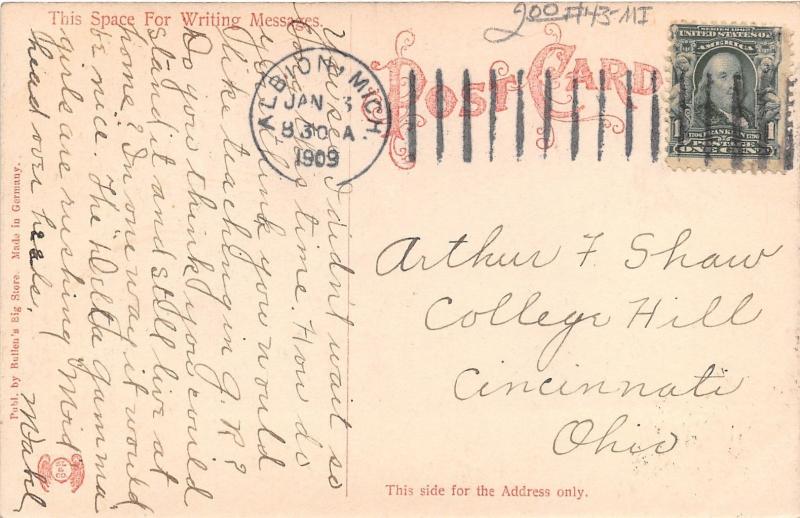 This Space For Writing Messages.
200 #43-MI
POST CARD
ALBION, MICH.
JAN 3
8 30 A
1909
SERIES 1902
UNITED STATES OF
AMERICA
1706 FRANKLIN 1790
POSTAGE
1 ONE CENT 1
I didn't wait so
time. How do
you think you would
like teaching in G. R.?
Do you think you could
stand it and still live at
home? In one way it would
be nice. The Delta Gamma
girls are rushing Mid
head over heels.
Mahl
Arthur F Shaw
College Hill
Cincinnati
Ohio
This side for the Address only.
Publ. by Bullen's Big Store. Made in Germany.